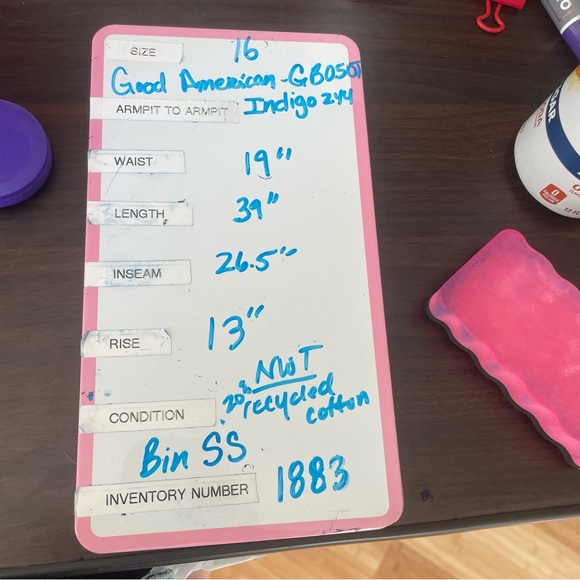 SIZE 16
Good American-GB050T
ARMPIT TO ARMPIT Indigo 244
WAIST 19"
LENGTH 39"
INSEAM 26.5"
RISE 13"
NWT
20% recycled
CONDITION cotton
Bin SS
INVENTORY NUMBER 1883
0